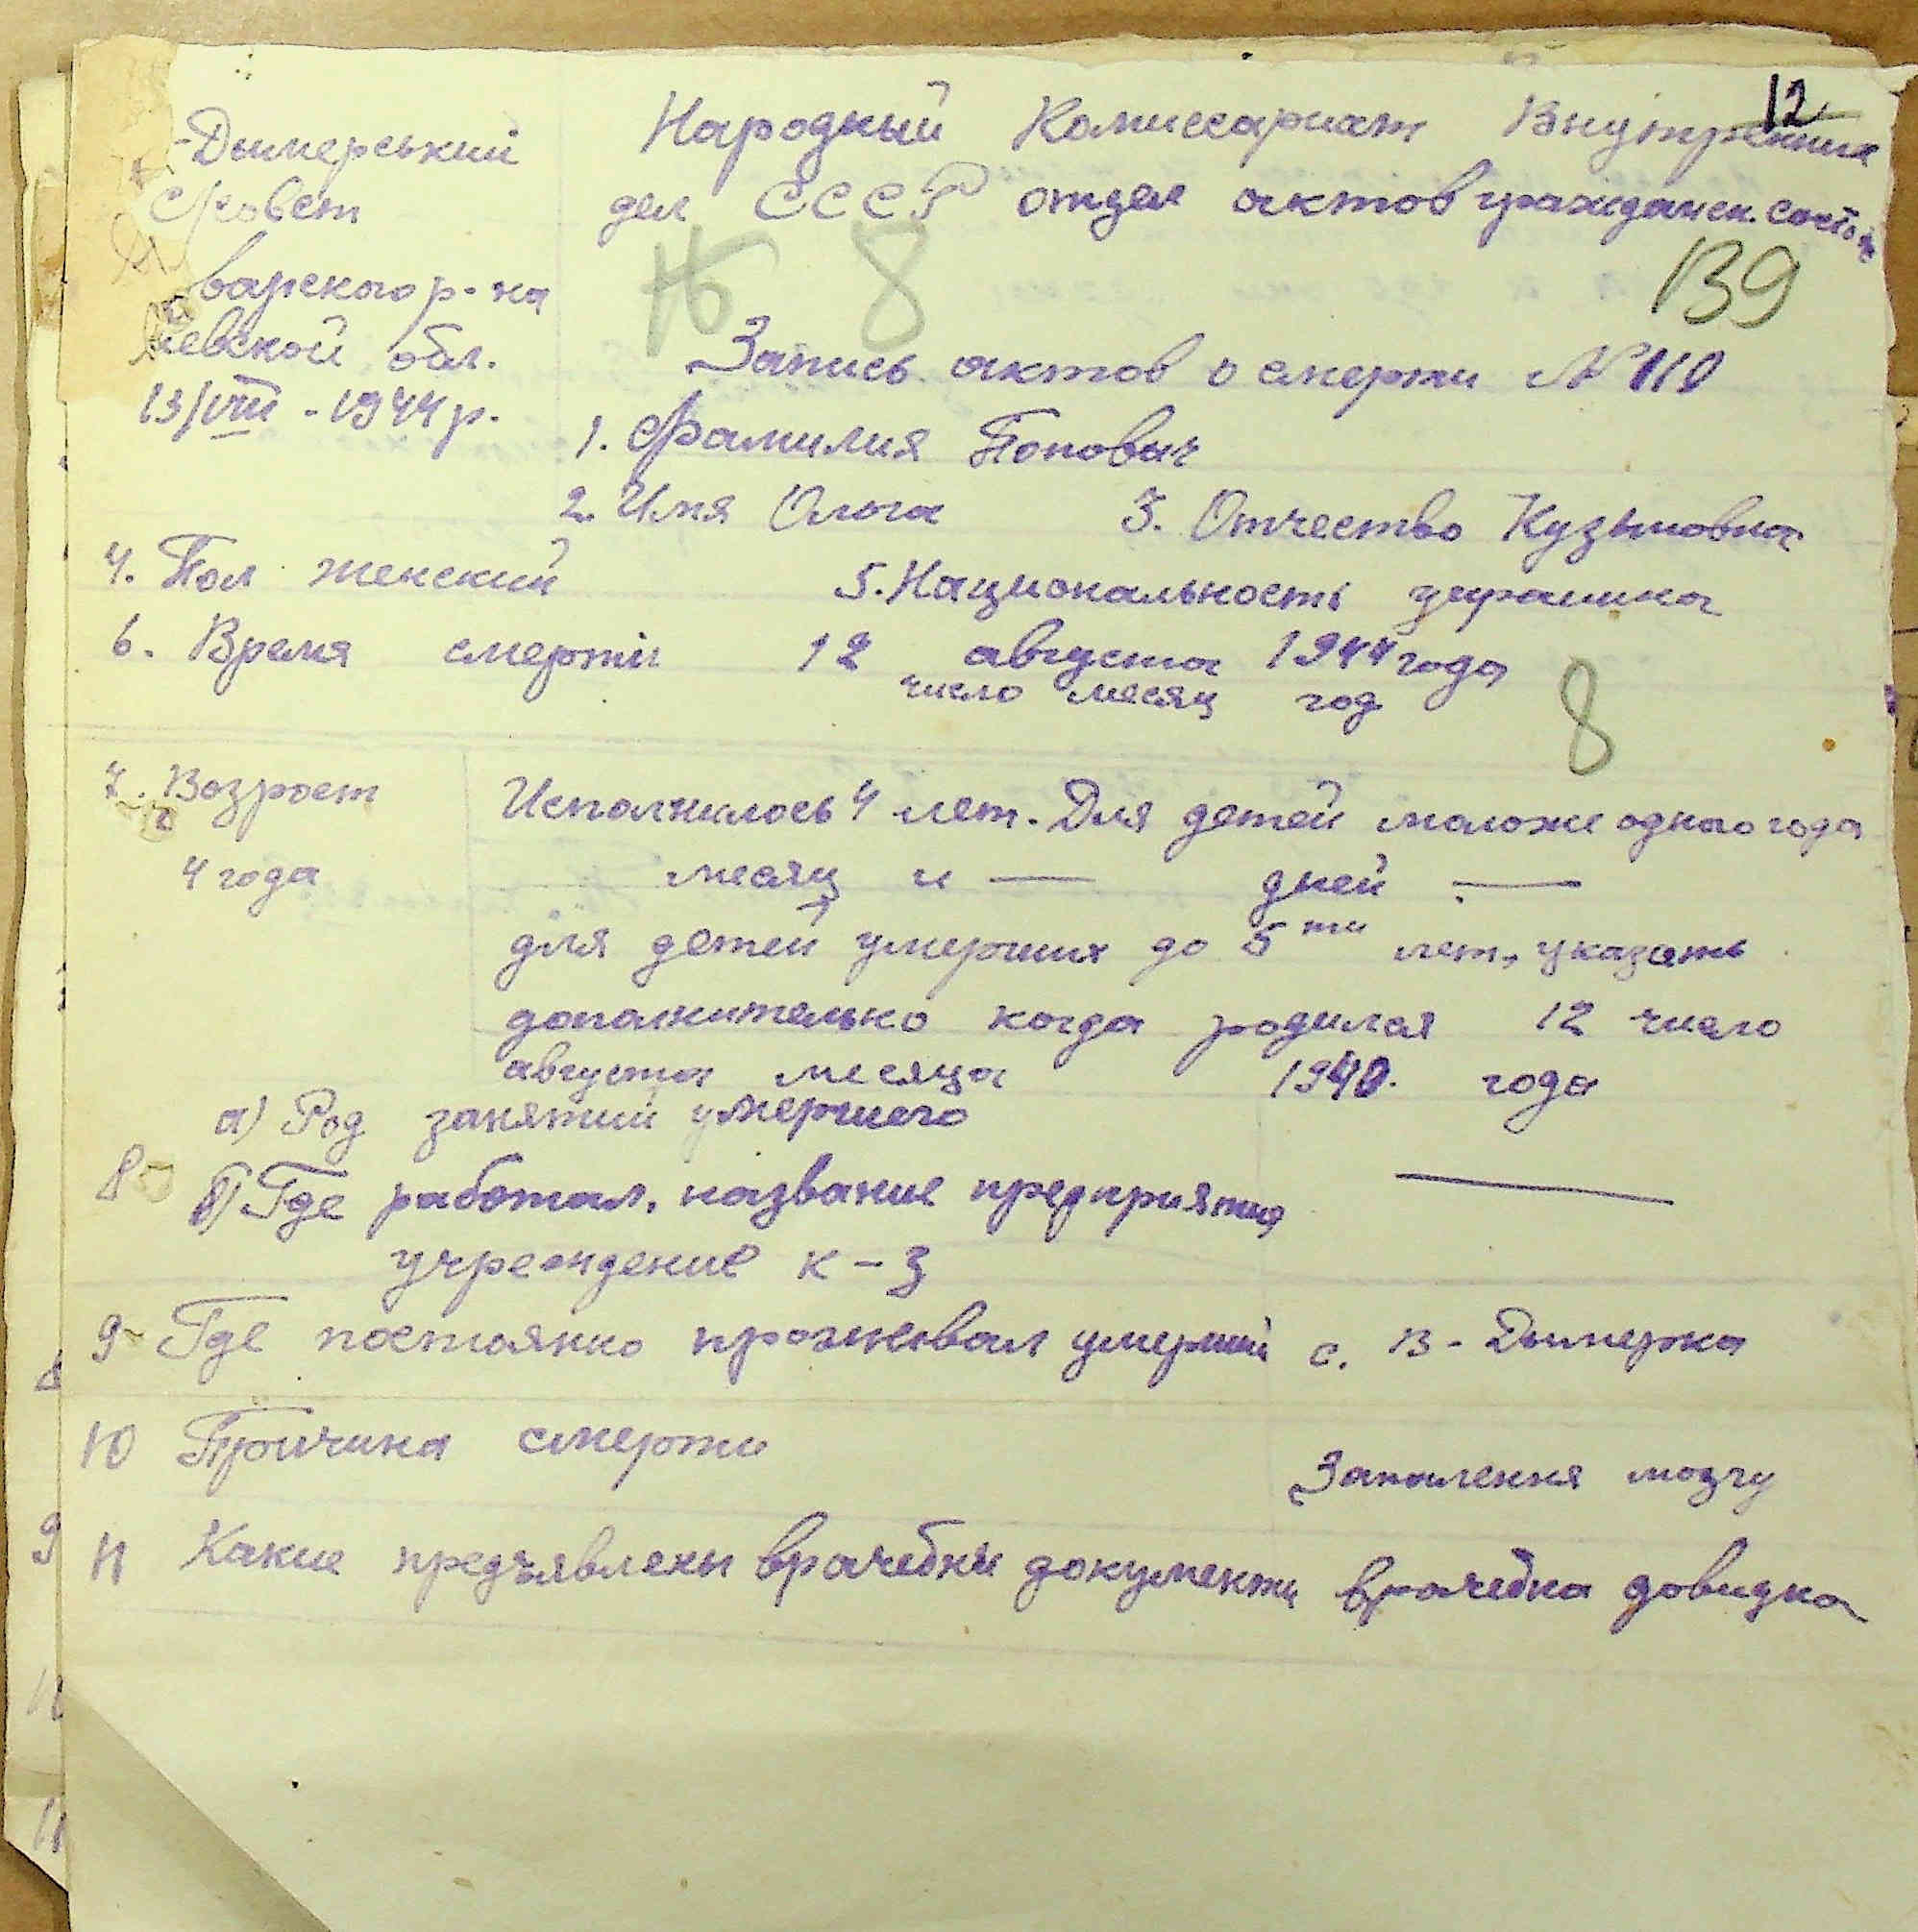 12
-Дымерський
с/совет
варского р-на
иевской обл.
13/VIII - 1944 р.
Народный Комиссариат Внутренние
дел СССР отдел актов граждансн. состоя
№ 8
139
Запись актов о смерти № 110
1. Фамилия Попович
2. Имя Ольга 3. Отчество Кузьмовна
4. Пол женский 5. Национальность украинка
6. Время смерти 12 августа 1944 года
число месяц год
8
7. Возрост Исполнилось 4 лет. Для детей моложе одного года
4 года месяц и — дней —
для детей умерших до 5ти лет, указать
дополнительно когда родился 12 число
августа месяца 1940. года
а) Род занятий умершего
8 б) Где работал, название предприятия —
учреждение к-з
9 Где постоянно проживал умерший с. В-Дымерка
10 Причина смерти Запалення мозгу
11 Какие предъявлены врачебни документи врачебна довидка
8
9
11